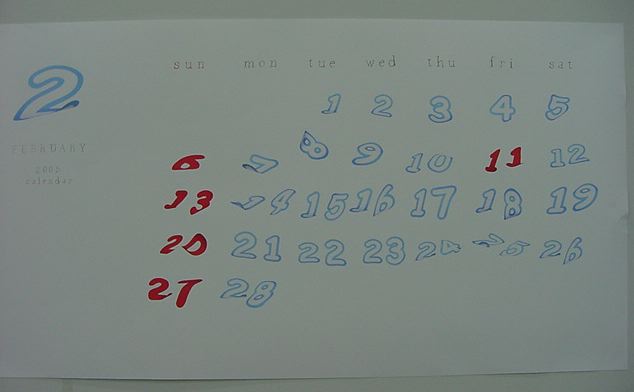 sun mon tue wed thu fri sat
2
FEBRUARY
2005
calendar
1 2 3 4 5
6 7 8 9 10 11 12
13 14 15 16 17 18 19
20 21 22 23 24 25 26
27 28